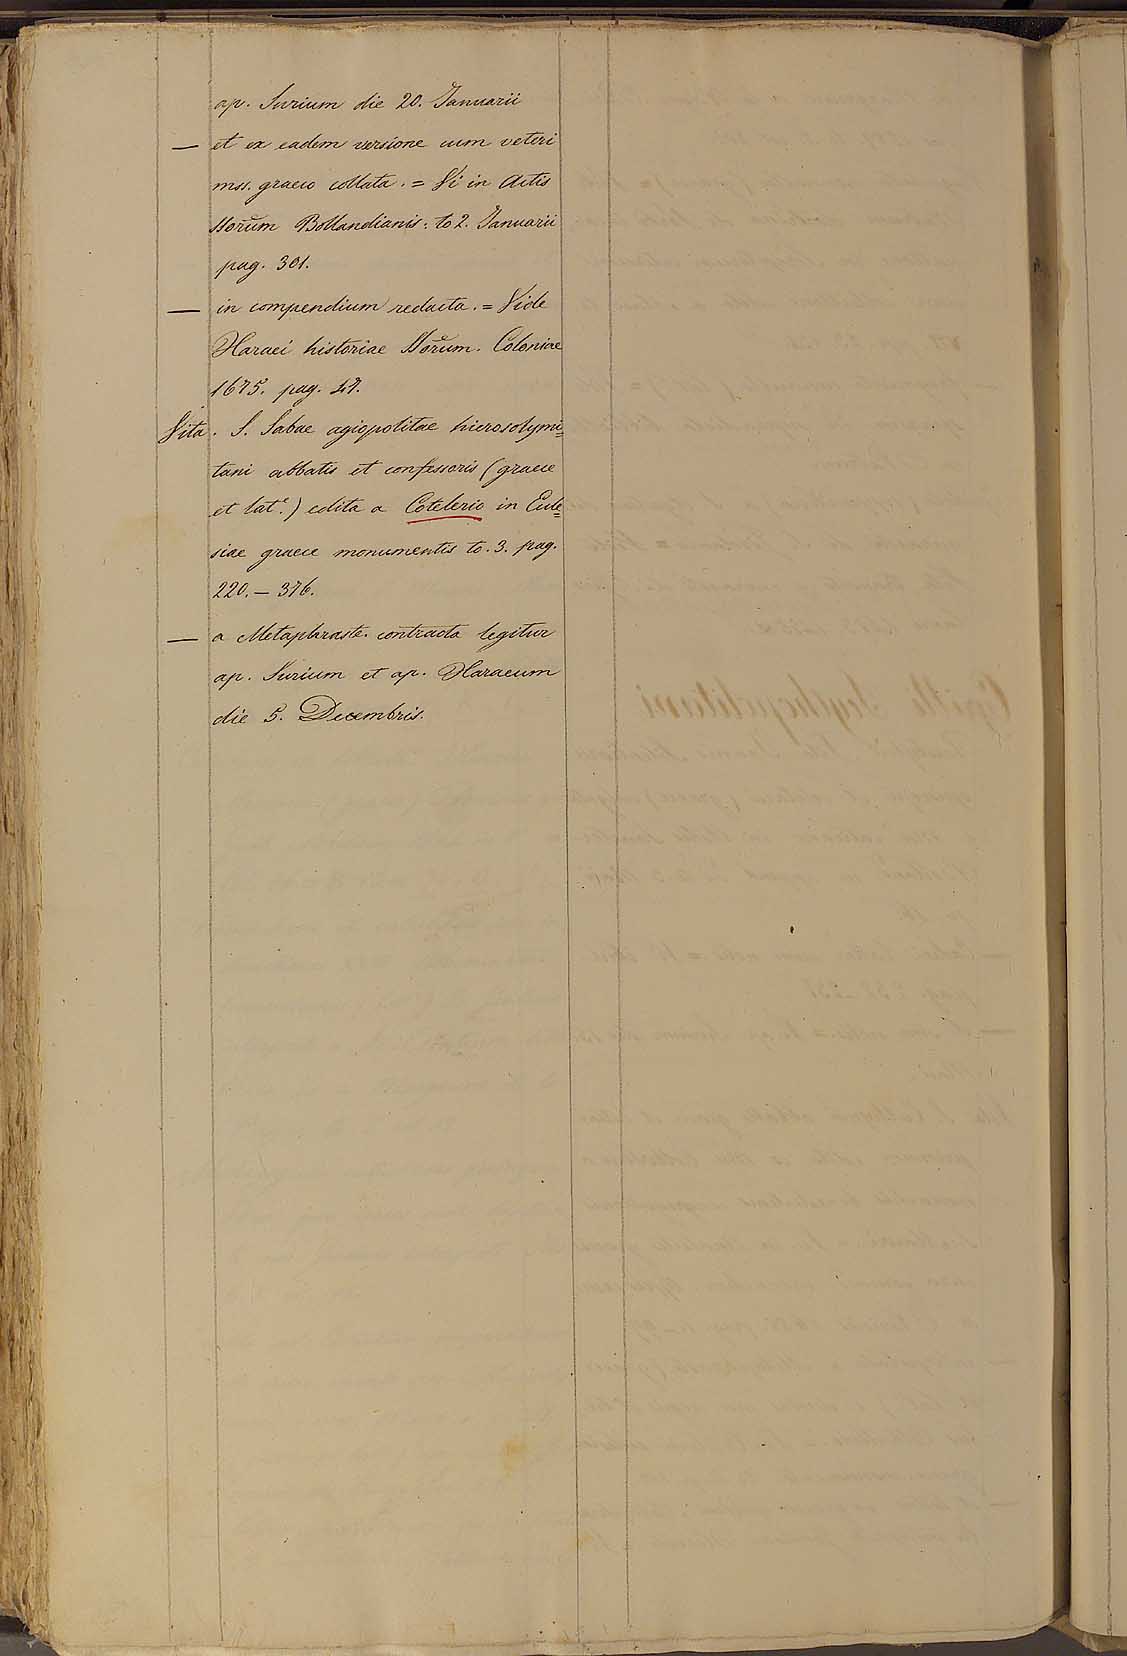 ap. Surium die 20. Januarii
— et ex eadem versione cum veteri
mss. graeco collata. = Vi in Actis
SSorũm Bollandianis: to 2. Januarii
pag. 301.
— in compendium redacta. = Vide
Haraei historiae SSorũm. Coloniae
1675. pag. 47.
Vita. S. Sabae agiopolitae hierosolymi=
tani abbatis et confessoris (graece
et lat.e) edita a Cotelerio in Eccle=
siae graece monumentis to. 3. pag.
220. — 376.
— a Metaphraste contracta legitur
ap. Surium et ap. Haraeum
die 5. Decembris.